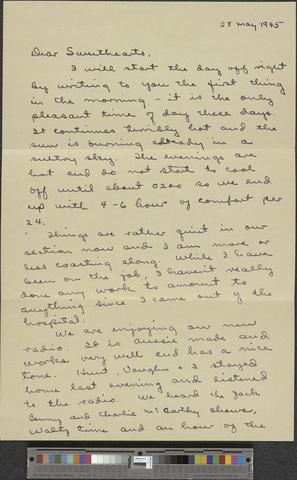 28 May 1945
Dear Sweethearts,
I will start the day off right
by writing to you the first thing
in the morning - it is the only
pleasant time of day these days.
It continues terribly hot and the
sun is burning already in a
sultry sky. The evenings are
hot and do not start to cool
off until about 0200 so we end
up with 4-6 hour of comfort per
24.
Things are rather quiet in our
section now and I am more or
less coasting along. While I have
been on the job, I haven't really
done any work to amount to
anything since I came out of the
hospital.
We are enjoying our new
radio. It is Aussie made and
works very well and has a nice
tone. Hunt, Vaughn & I stayed
home last evening and listened
to the radio. We heard the Jack
Benny and Charlie McCarthy shows,
Waltz time and an hour of the